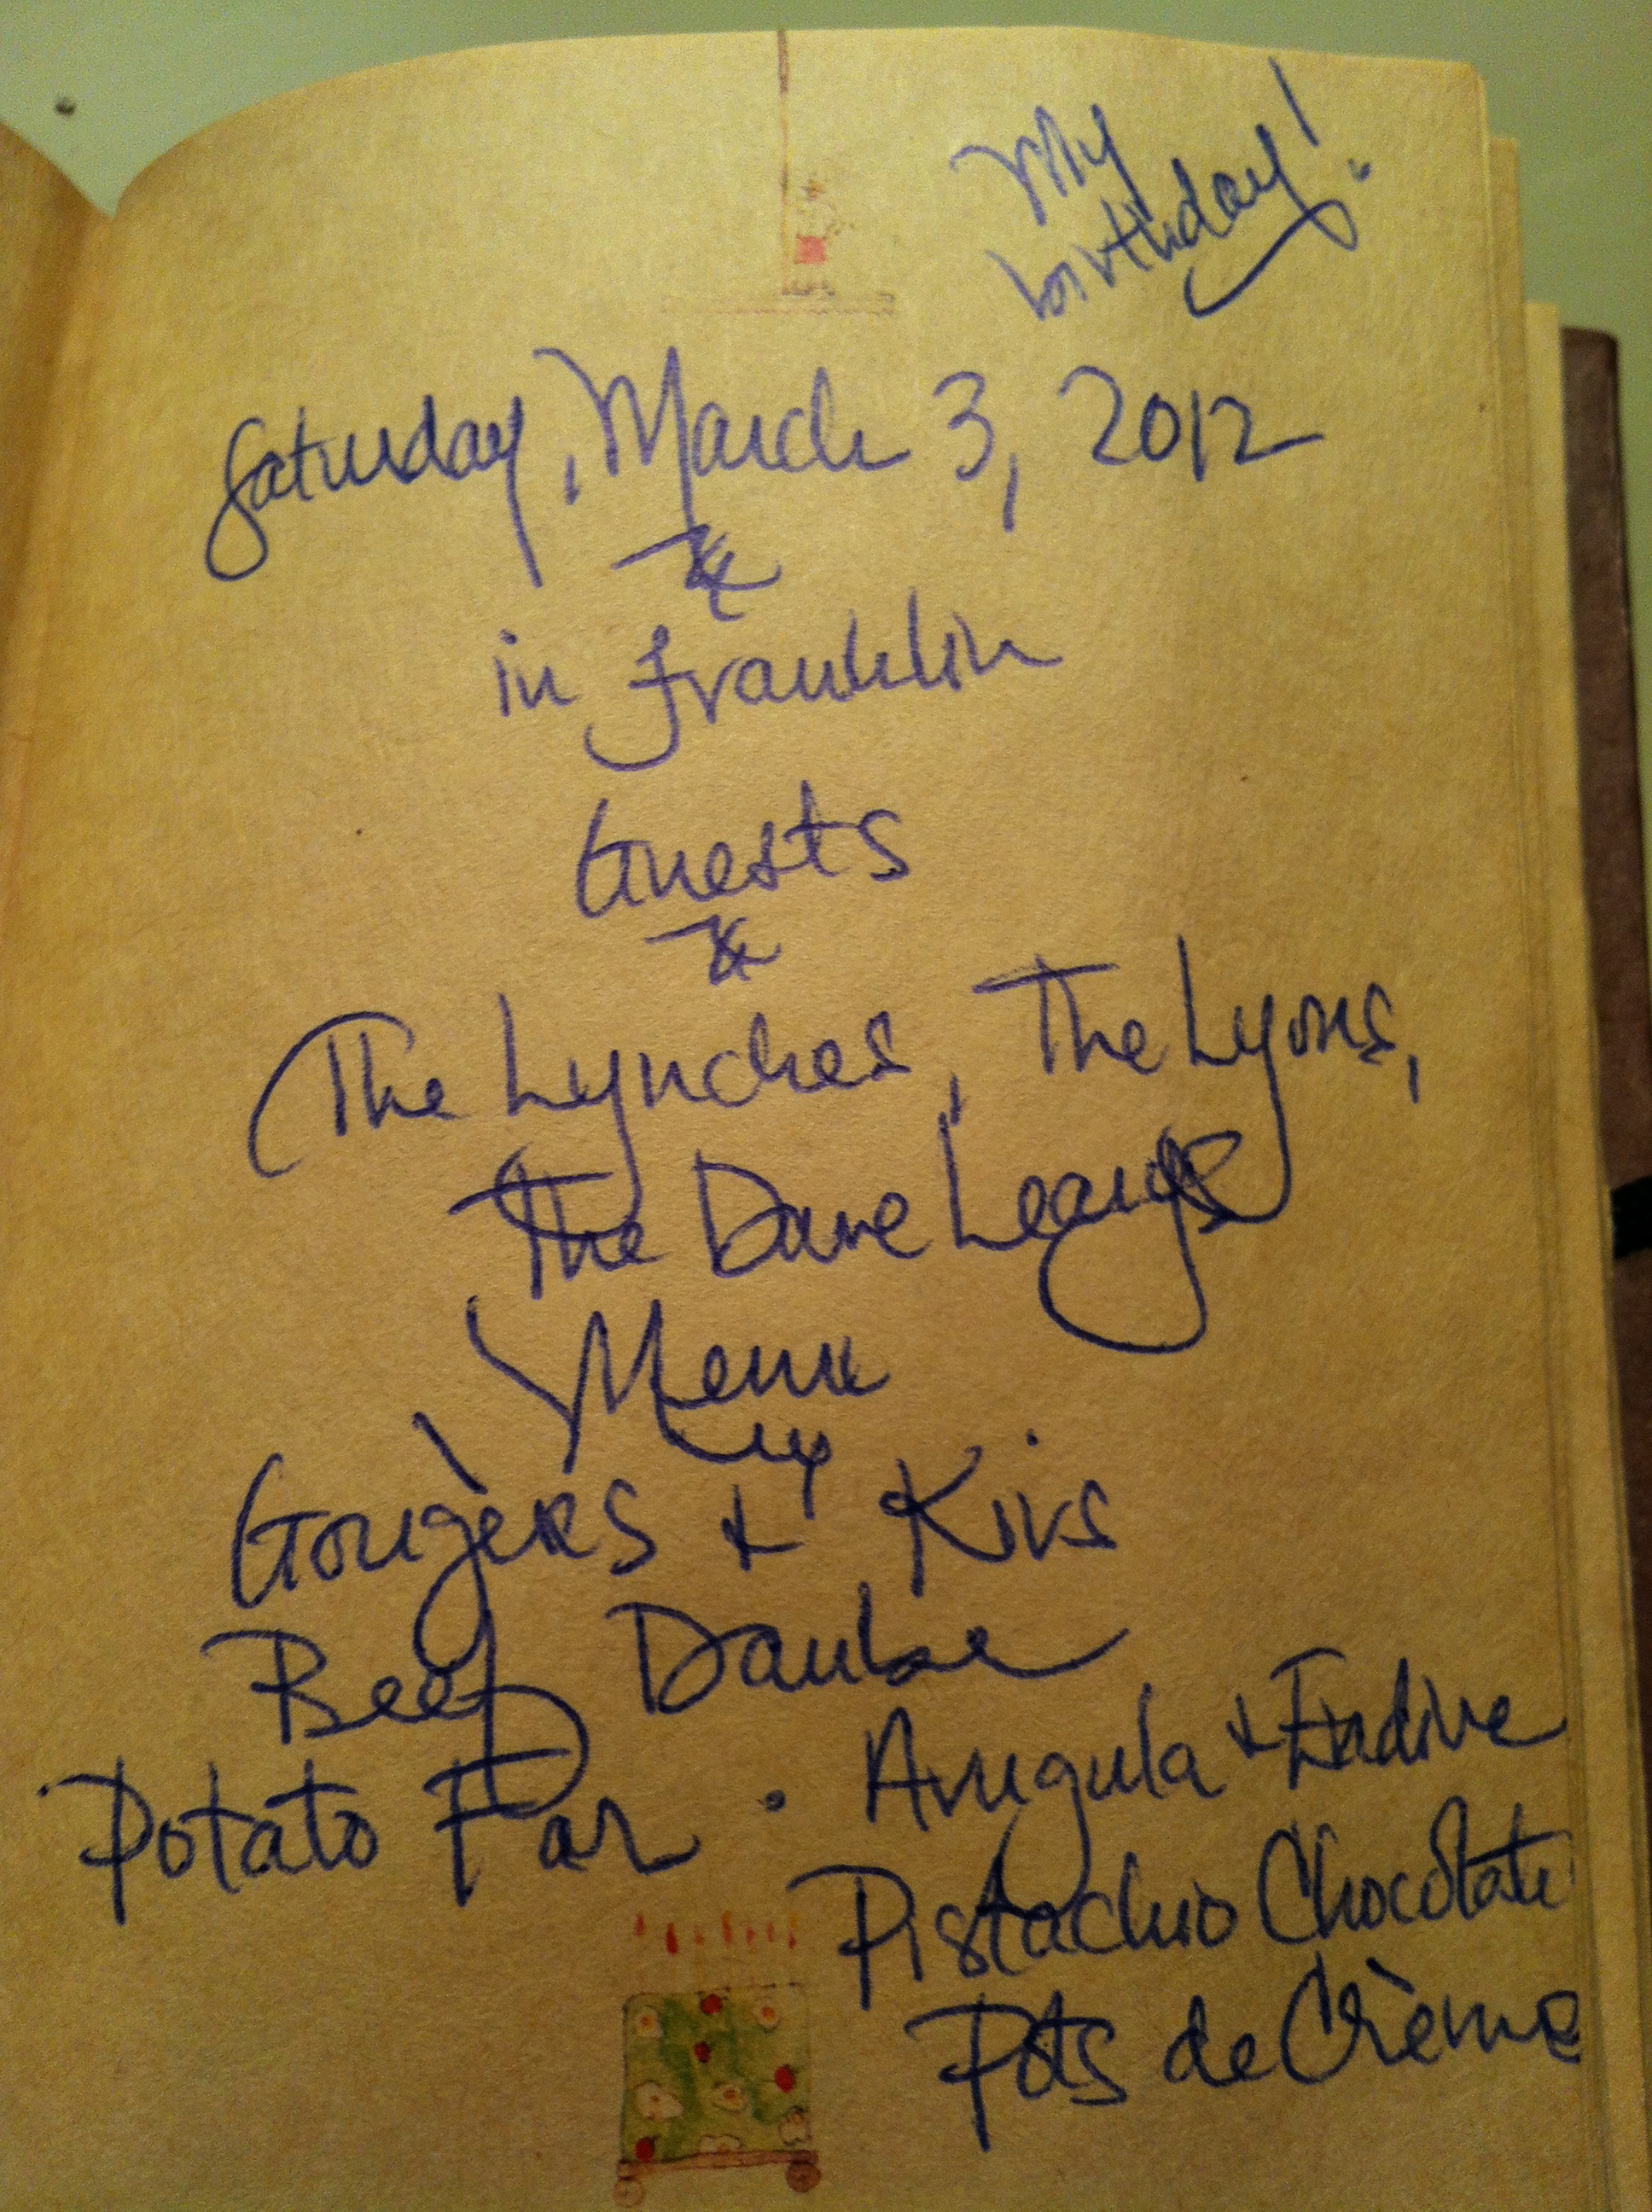 My
birthday!
Saturday, March 3, 2012
in Franklin
Guests
The Lynches, The Lyons,
The Dave Learys
Menu
Gougères & Kirs
Beef Daube
Potato Far · Arugula & Endive
Pistachio Chocolate
Pots de Crème